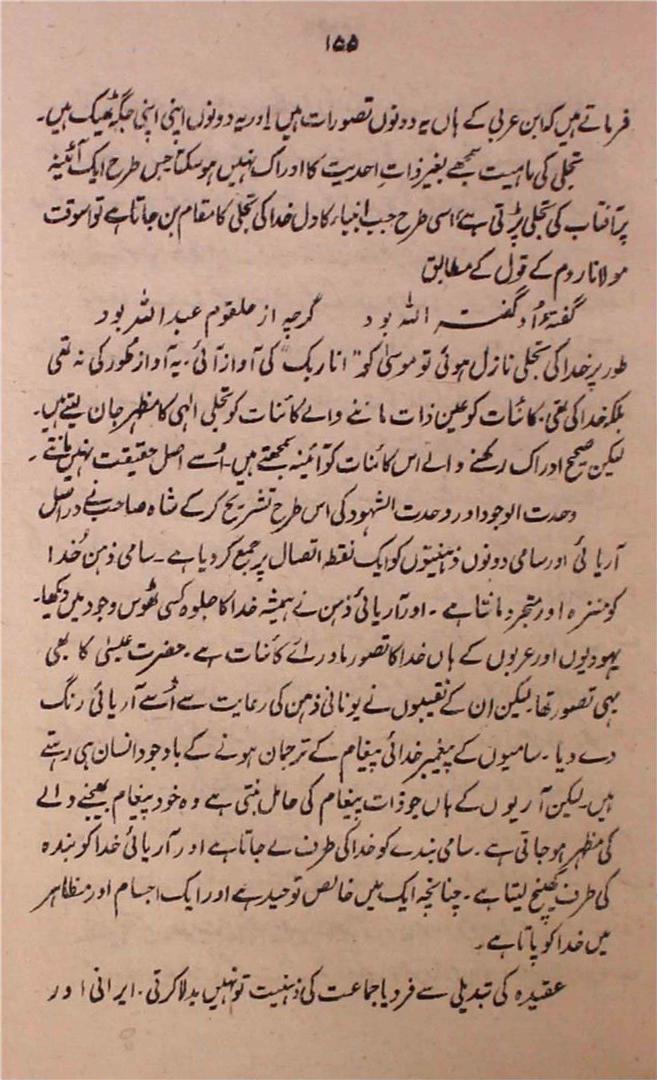 ۱۵۵
فرماتے ہیں کہ ابن عربی کے ہاں یہ دونوں تصورات ہیں اور یہ دونوں اپنی اپنی جگہ ٹھیک ہیں۔
تجلی کی ماہیت سمجھے بغیر ذاتِ احدیت کا ادراک نہیں ہو سکتا جس طرح ایک آئینہ
پر آفتاب کی تجلی پڑتی ہے، اسی طرح جب انبیاء کا دل خدا کی تجلی کا مقام بن جاتا ہے تو اسوقت
مولانا روم کے قول کے مطابق
گفتۂ اُو گفتہ اللہ بود گرچہ از حلقوم عبد اللہ بود
طور پر خدا کی تجلی نازل ہوئی تو موسیٰ کو "انا ربک" کی آواز آئی۔ یہ آواز طور کی نہ تھی
بلکہ خدا کی تھی۔ کائنات کو عین ذات ماننے والے کائنات کو تجلی الٰہی کا مظہر جان لیتے ہیں۔
لیکن صحیح ادراک رکھنے والے اس کائنات کو آئینہ سمجھتے ہیں۔ اُسے اصل حقیقت نہیں مانتے۔
وحدت الوجود اور وحدت الشہود کی اس طرح تشریح کر کے شاہ صاحب نے در اصل
آریائی اور سامی دونوں ذہنیتوں کو ایک نقطہ اتصال پر جمع کر دیا ہے۔ سامی ذہن خُدا
کو منزہ اور متجرد مانتا ہے۔ اور آریائی ذہن نے ہمیشہ خدا کا جلوہ کسی ٹھوس وجود میں دیکھا۔
یہودیوں اور عربوں کے ہاں خدا کا تصور ماورائے کائنات ہے۔ حضرت عیسیٰ کا بھی
یہی تصور تھا۔ لیکن ان کے نقیبوں نے یونانی ذہن کی رعایت سے اُسے آریائی رنگ
دے دیا۔ سامیوں کے پیغمبر خدائی پیغام کے ترجمان ہونے کے باوجود انسان ہی رہتے
ہیں۔ لیکن آریوں کے ہاں جو ذات پیغام کی حامل بنتی ہے وہ خود پیغام بھیجنے والے
کی مظہر ہو جاتی ہے۔ سامی بندے کو خدا کی طرف لے جاتا ہے اور آریائی خدا کو بندہ
کی طرف کھینچ لیتا ہے۔ چنانچہ ایک میں خالص توحید ہے اور ایک اجسام اور مظاہر
میں خدا کو پاتا ہے۔
عقیدہ کی تبدیلی سے فرد یا جماعت کی ذہنیت تو نہیں بدلا کرتی۔ ایرانی اور